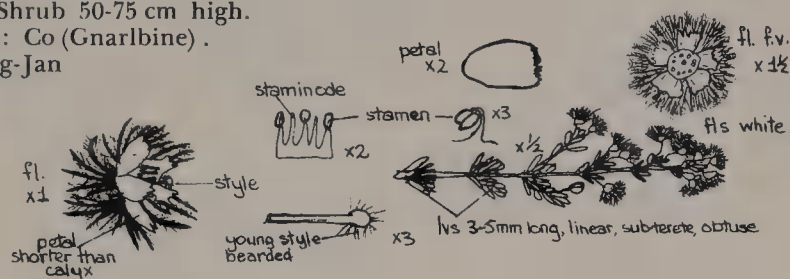 Shrub 50-75 cm high.
: Co (Gnarlbine) .
g-Jan
petal
x2
fl. f.v.
x 1½
staminode
stamen
x3
x2
x½
fls white
fl.
x1
style
petal
shorter than
calyx
young style
bearded
x3
lvs 3-5mm long, linear, subterete, obtuse